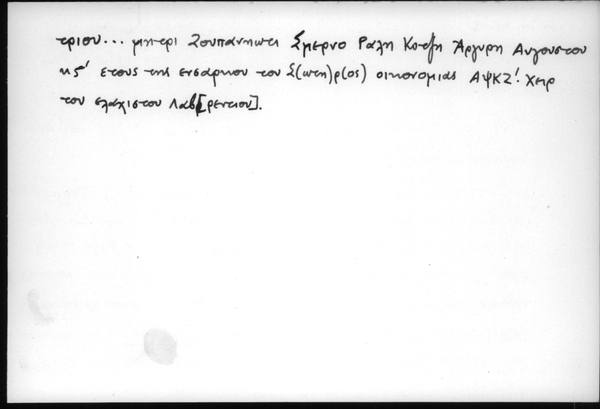 τριου... μητρι Ζουπανηωτι Σμερνο Ραλη Κοτζη Άργυρη Αυγουστου
κς' ετους της ενσαρκου του Σ(ωτη)ρ(ος) οικονομιας ΑΨΚΖ'. Χειρ
του ελαχιστου Λαβ[ρεντιου].